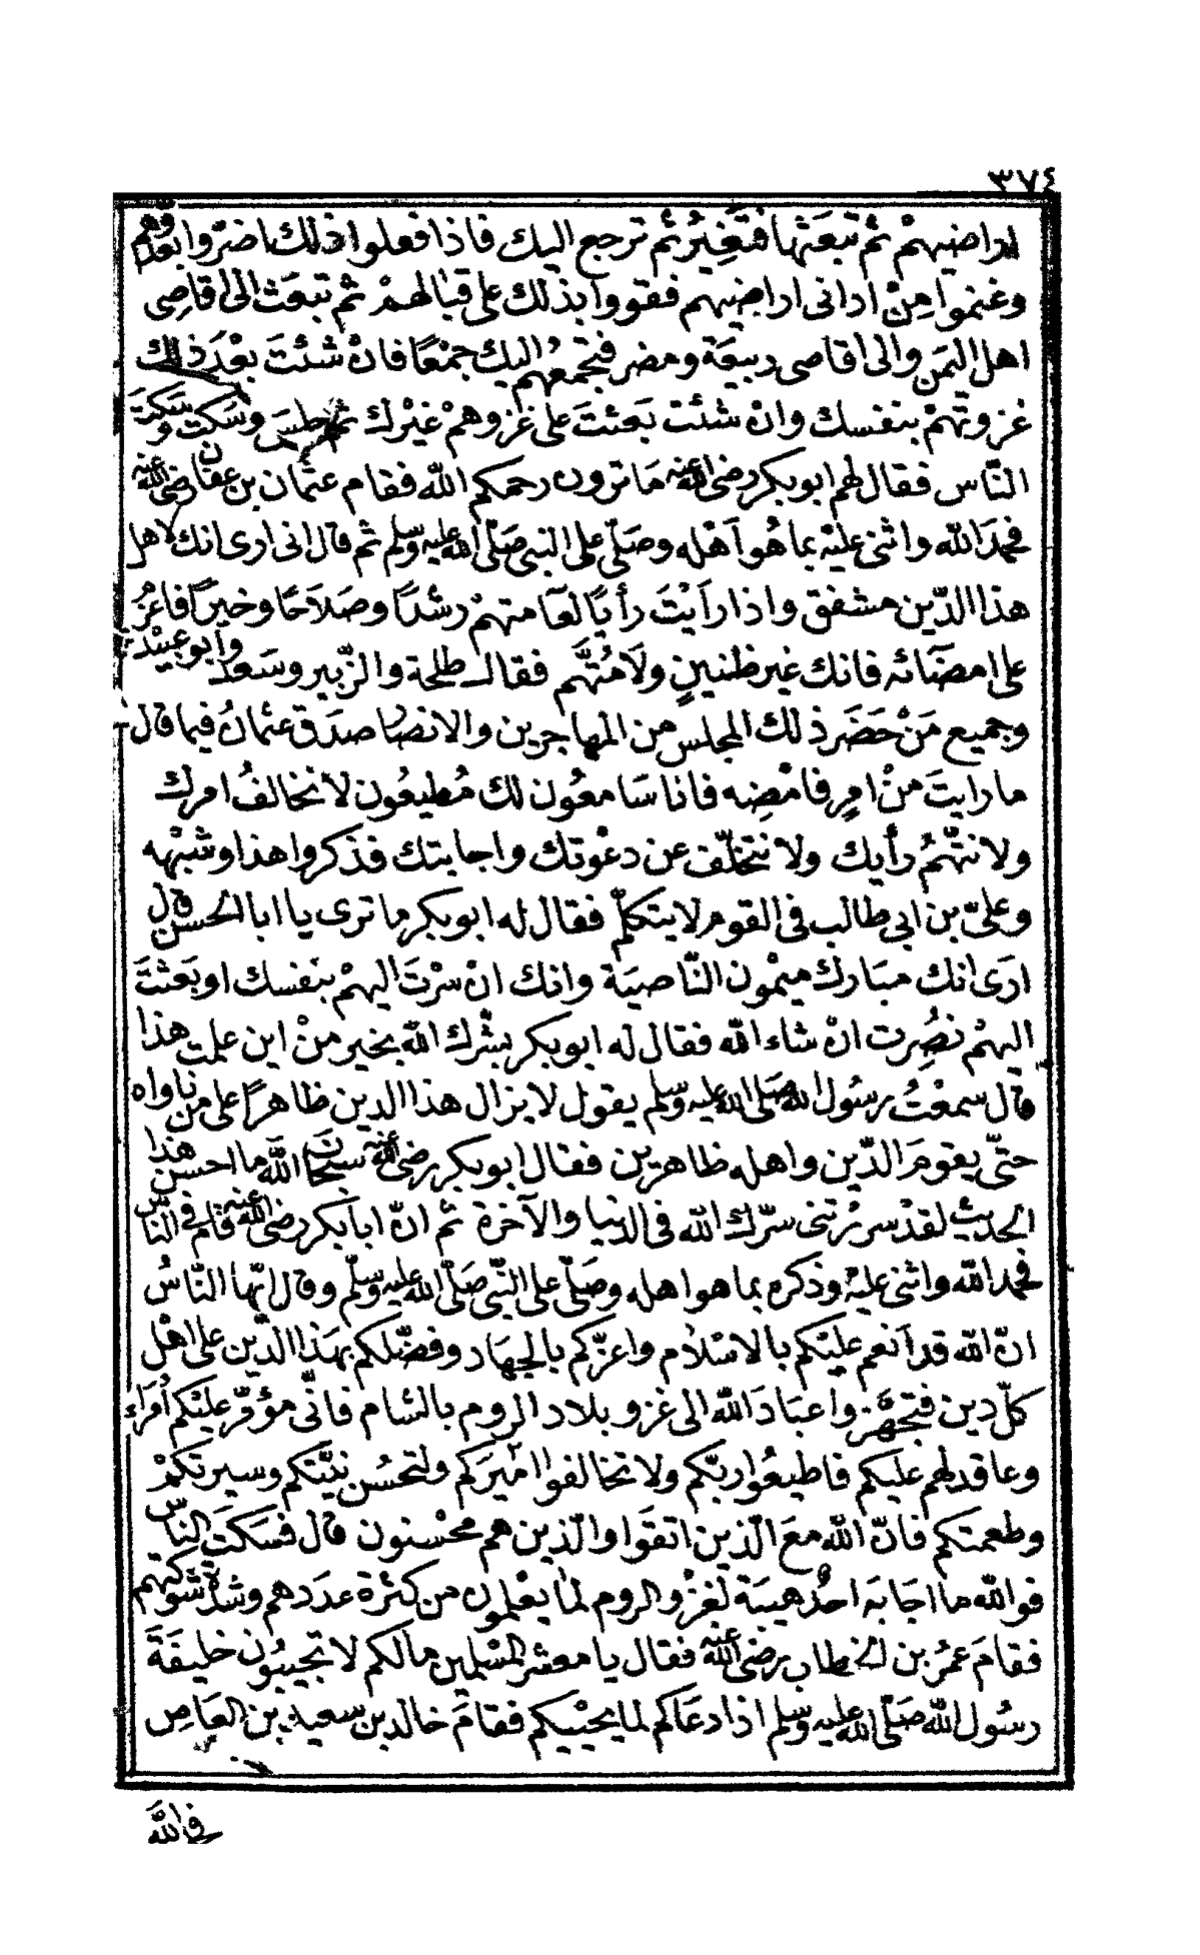 ٣٧٤
اراضيهمْ ثم تبعَثها فتَغِيرُ ثم ترجع اليك فاذا فعلوا ذلك اضرّوا بعدُوّهم
وغنموا مِنْ ادانى اراضيهم فقووا بذلك على قتالهمْ ثم تبعَث الى اقاصِى
اهل اليمَن والى اقاصى ربيعَة ومضر فتجمعهُم اليك جمْعًا فانْ شئتَ بعْدَ ذلك
غزوتهمْ بنفسك وانْ شئت بَعثتَ على غزوهمْ غيْرك ثم جلسَ وسَكت وسَكتَ
النّاس فقال لهم ابوبكر رضى الله عنه مَا ترون رحمكم الله فقام عثمان بن عفان رضى الله عنه
فحمدَ الله واثنى عليْه بما هُو اَهْله وصَلّى على النبى صَلّى الله عليه وسلم ثم قال انى ارى انك لاهل
هذا الدّين مشفق واذا رَاَيْتَ رأيًا لعَامتهمْ رشدًا وصَلاَحًا وخيرًا فاعْزُ
على امضَائه فانك غير ظنينٍ ولاَ مُتهَّم فقال طلحة والزّبير وسَعد وابو عبيْدة
وجميع مَنْ حَضَر ذلك المجلس من المهاجرين والانصار صدَق عثمانُ فيما قال
ما رايتَ منْ امرٍ فامْضِه فانا سَامعُون لك مُطيعُون لا نخالفُ امرك
ولا نتّهمُ رأيك ولا نتخلّف عن دعْوتك واجابتك فذكروا هذا وشبْهه
وعلىّ بن ابى طالب فى القوم لا يتكلّم فقال له ابوبكر ما ترى يا ابا الحسن قال
ارَى انك مبَارك ميْمون النّاصيَة وانك انْ سْرتَ اليهمْ بنفسك او بَعثتَ
اليهمْ نصُرِت انْ شاء الله فقال له ابوبكر بشّرك الله بخير منْ اين علمت هذا
قال سمعْتُ رسُول الله صَلى الله عليه وسلم يقول لا يزال هذا الدين ظاهرًا على من ناواه
حتّى يقومَ الدّين واهله ظاهرين فقال ابوبكر رضى الله عنه سبحَانَ الله ما احسن هذا
الحديث لقدْ سررْتنى سرّك الله فى الدنيا والآخرة ثم انّ ابا بكر رضى الله عنه قام فى النّاس
فحمد الله واثنى عليْه وذكره بما هو اهله وصَلّى على النّبى صَلّى الله عليه وسلّم وقال ايّها النّاسُ
انّ الله قد اَنعم عليْكم بالاسْلام واعزّكم بالجهاد وفضّلكم بهَذا الدّين على اهْل
كلّ دين فتجهّزوا عبَادَ الله الى غزو بلاد الروم بالشام فانّى مؤمّر عليْكم اُمَراء
وعاقد لهم عليكم فاطيعُوا ربّكم ولا تخالفوا امَيرَكم ولتحْسُن نيّتكم وسيرتكمْ
وطعمتكم فانّ الله معَ الّذين اتقَوا والّذين هم محْسنون قال فسَكتَ النّاس
فوالله ما اجَابَه احدٌ هيبَة لغزْو الروم لمَا يعْلمون من كثرة عدَدهم وشدّة شوْكتهم
فقامَ عمَرُ بن الخطاب رضى الله عنه فقال يا معشر المسْلمين ما لكم لا تجيبُون خليفَةَ
رسُول الله صَلّى الله عليه وسلم اذا دعَاكم لما يحْييكم فقامَ خالد بن سعيد بن العَاصِ
فى الله